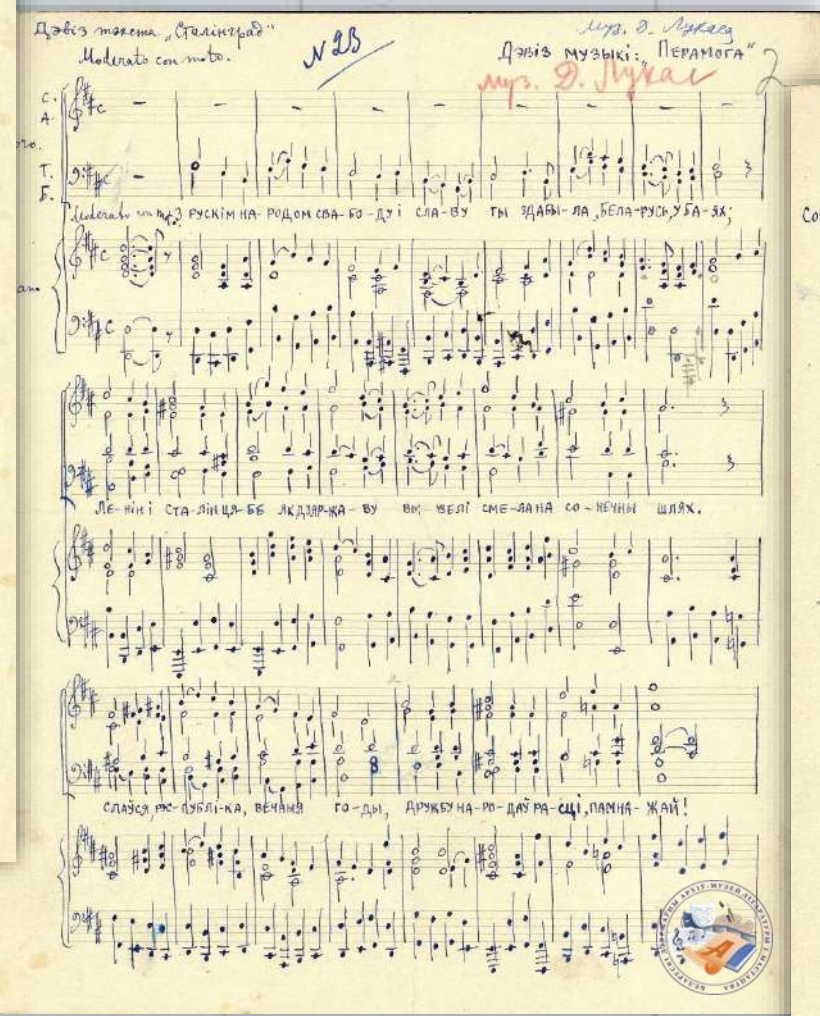 Дэвіз тэкста „Сталінград"
Moderato con moto.
N 23
Муз. Д. Лукаса
Дэвіз музыкі: „Перамога"
муз. Д. Лукас
2
С.
А.
Т.
Б.
Moderato con moto
З РУСКІМ НА-РОДОМ СВА-БО-ДУ І СЛА-ВУ ТЫ ЗДАБЫ-ЛА, БЕЛА-РУСЬ, У БА-ЯХ;
ЛЕ-НІН І СТА-ЛІН ЦЯ-БЕ ЯК ДЗЯР-ЖА-ВУ ВЫ-ВЕЛІ СМЕ-ЛА НА СО-НЕЧНЫ ШЛЯХ.
СЛАЎСЯ, РЭС-ПУБЛІ-КА, ВЕЧНЫЯ ГО-ДЫ, ДРУЖБУ НА-РО-ДАЎ РА-СЦІ, ПАМНА-ЖАЙ!
БЕЛАРУСКІ ДЗЯРЖАЎНЫ АРХІЎ-МУЗЕЙ ЛІТАРАТУРЫ І МАСТАЦТВА